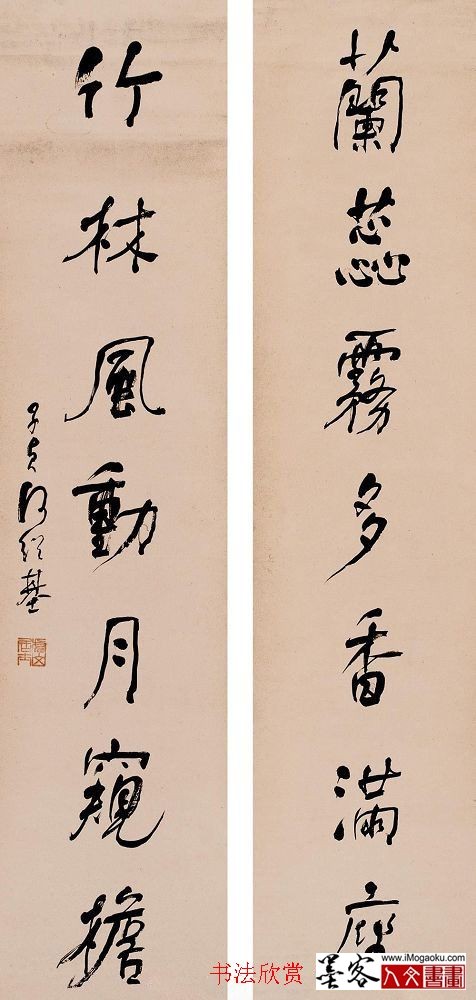 蘭蕊霧多香滿座
竹林風動月窺檐
子貞何紹基
书法欣赏
www.iMogaoku.com
墨客
人文書畫